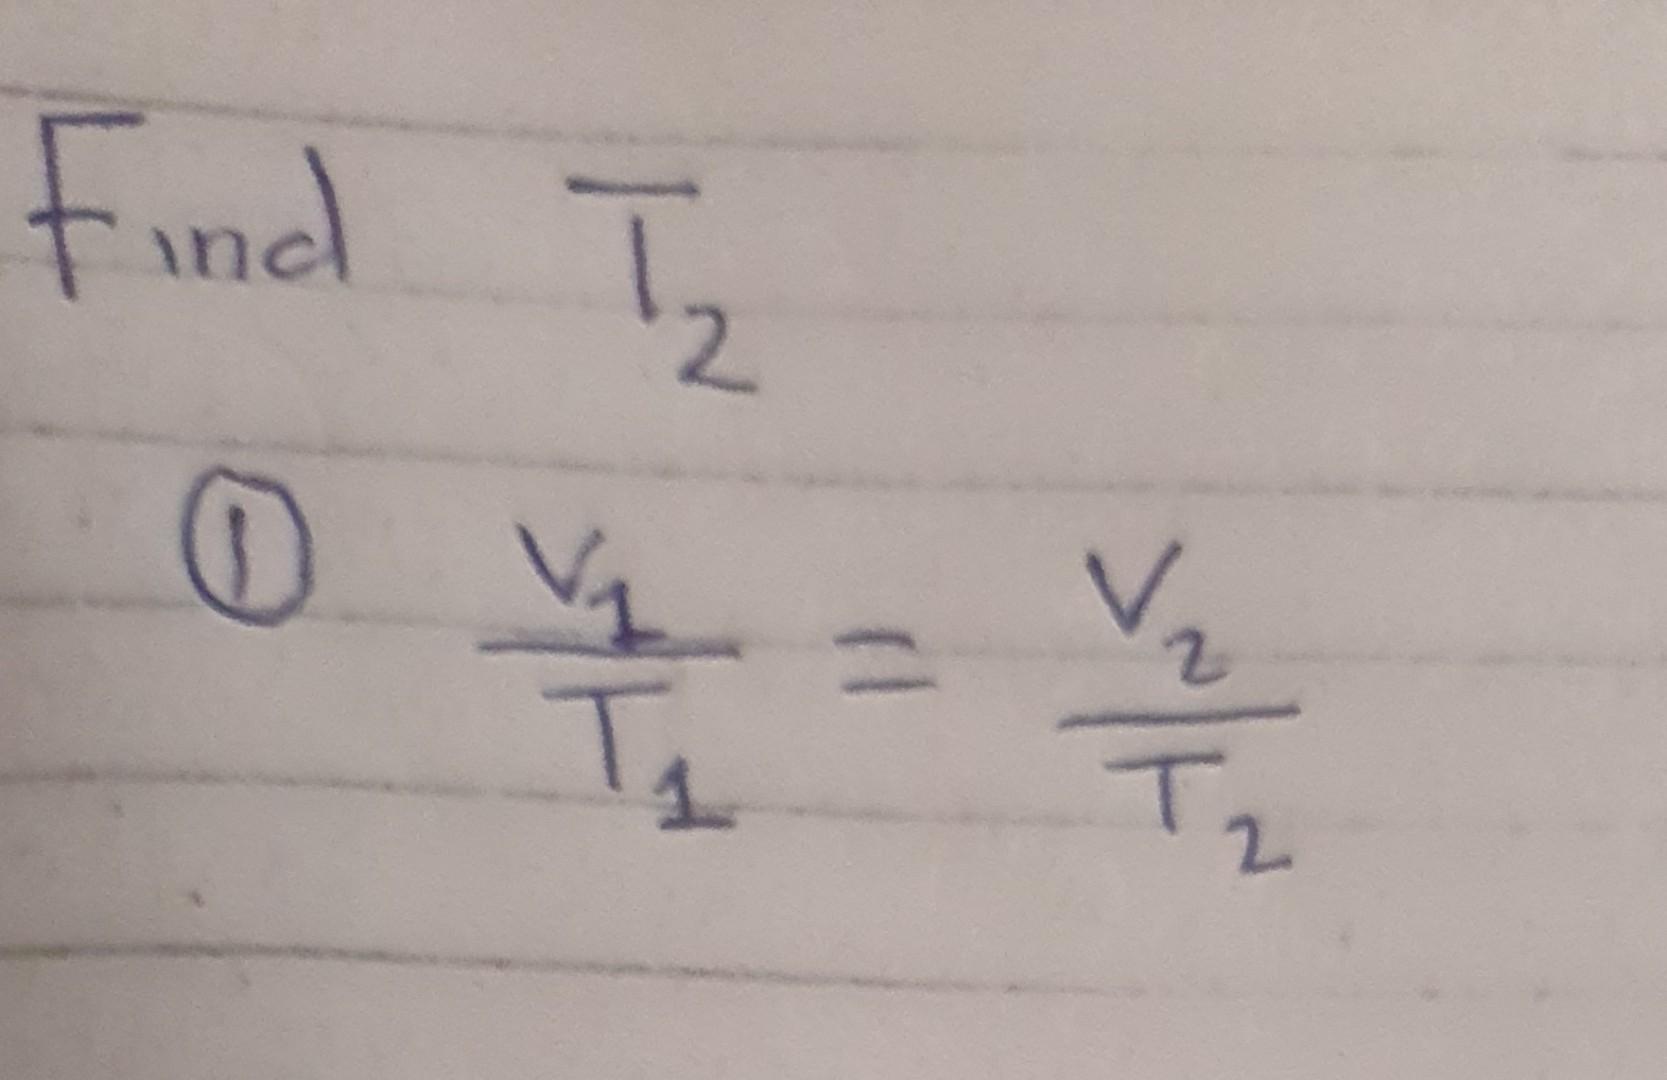 Find T₂
① V₁/T₁ = V₂/T₂